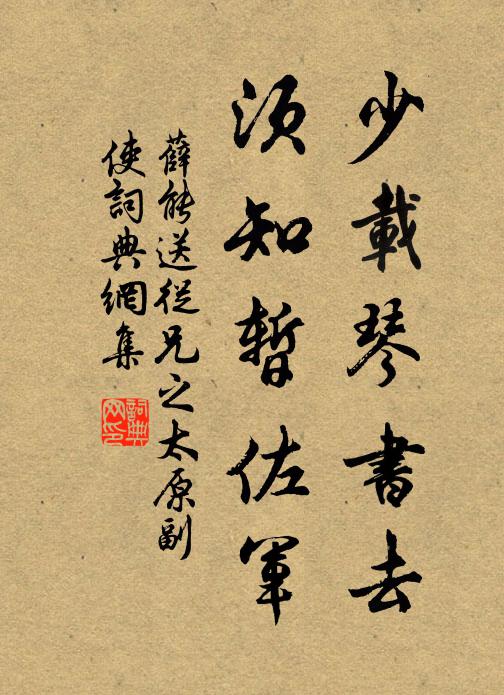 少載琴書去
須知暫佐軍
薛能送從兄之太原副
使詞典網集
詞典
网印